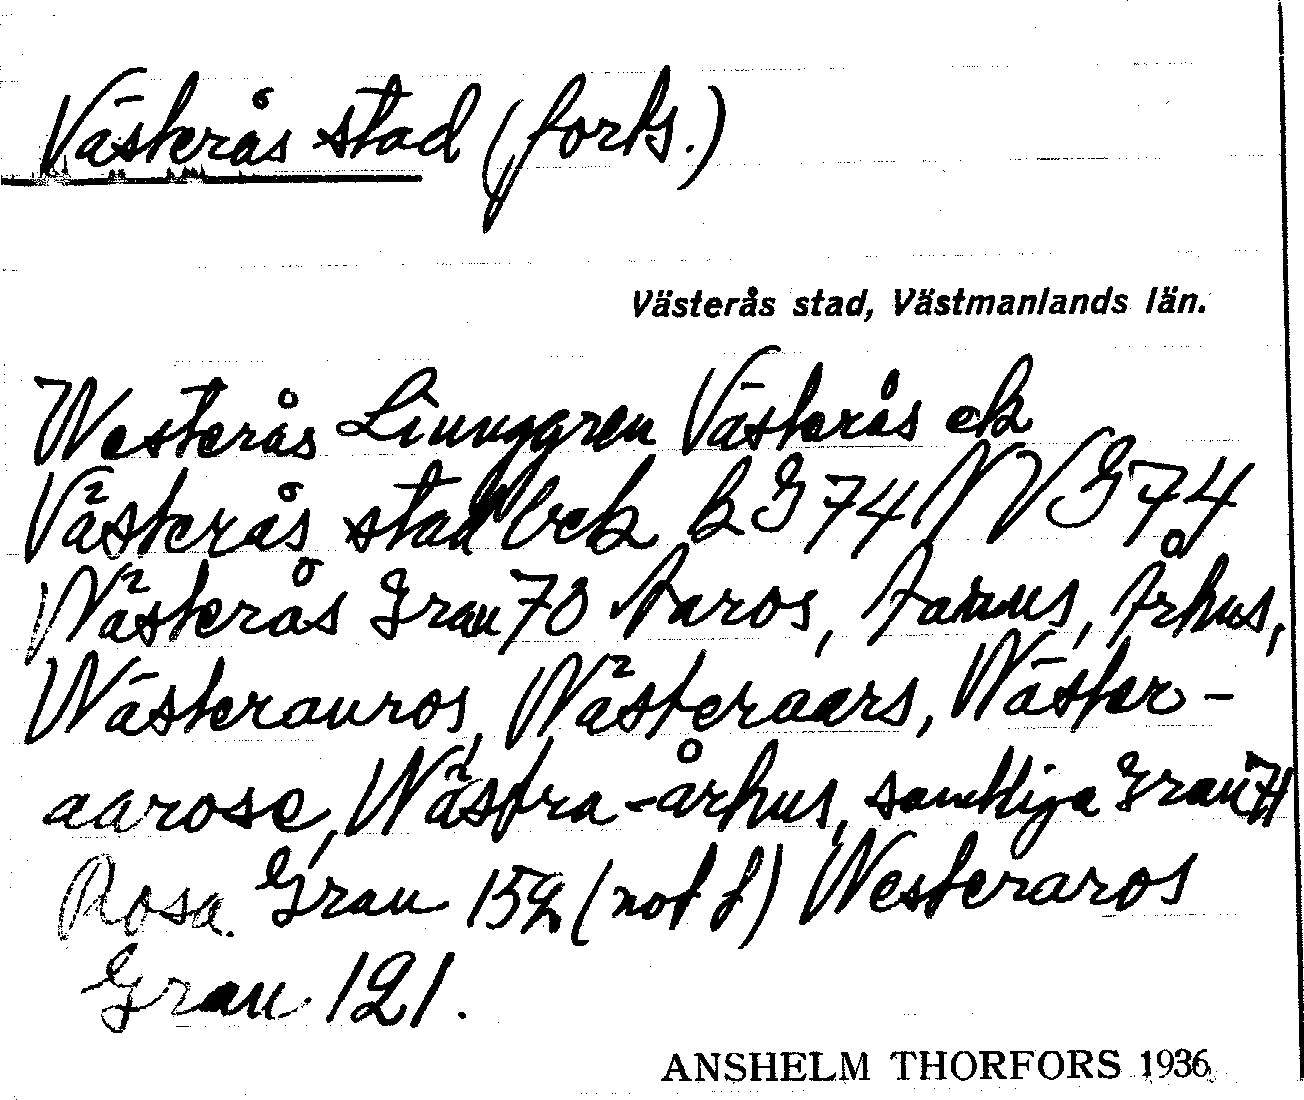 Västerås stad (forts.)
Västerås stad, Västmanlands län.
Westerås Linnggren Västerås ek
Västerås stad bek k G 74 VVG 74
Wästerås Grau 70 Aaros, Aarus, Århus,
Wästerauros, Wästeraars, Wäster-
aarose, Wästra-århus, samtliga Grau 71
Rosa. Grau 152 (not f) Westeraros
Grau 121.
ANSHELM THORFORS 1936